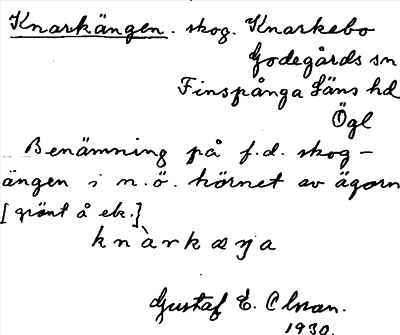 Knarkängen. skog. Knarkebo
Godegårds sn
Finspånga Läns hd
Ögl
Benämning på f.d. skog-
ängen i n.ö. hörnet av ägorn
[grönt å ek.]
knàrkæŋa
Gustaf E. Olsson.
1930.